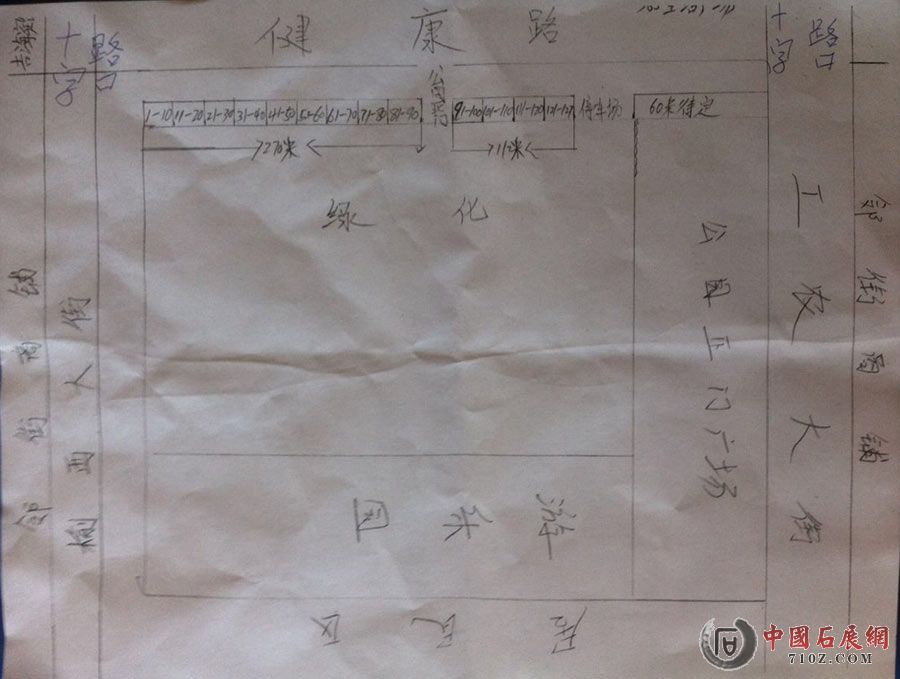 健康路
十字路口
十字路口
1-10 11-20 21-30 31-40 41-50 51-60 61-70 71-80 81-90
91-100 101-110 111-120 停车场
60米待定
270米
112米
绿化
公园正门广场
工农大街
邻街商铺
邻街商铺
榆西大街
游乐园
居民区
中國石展網
710Z.COM